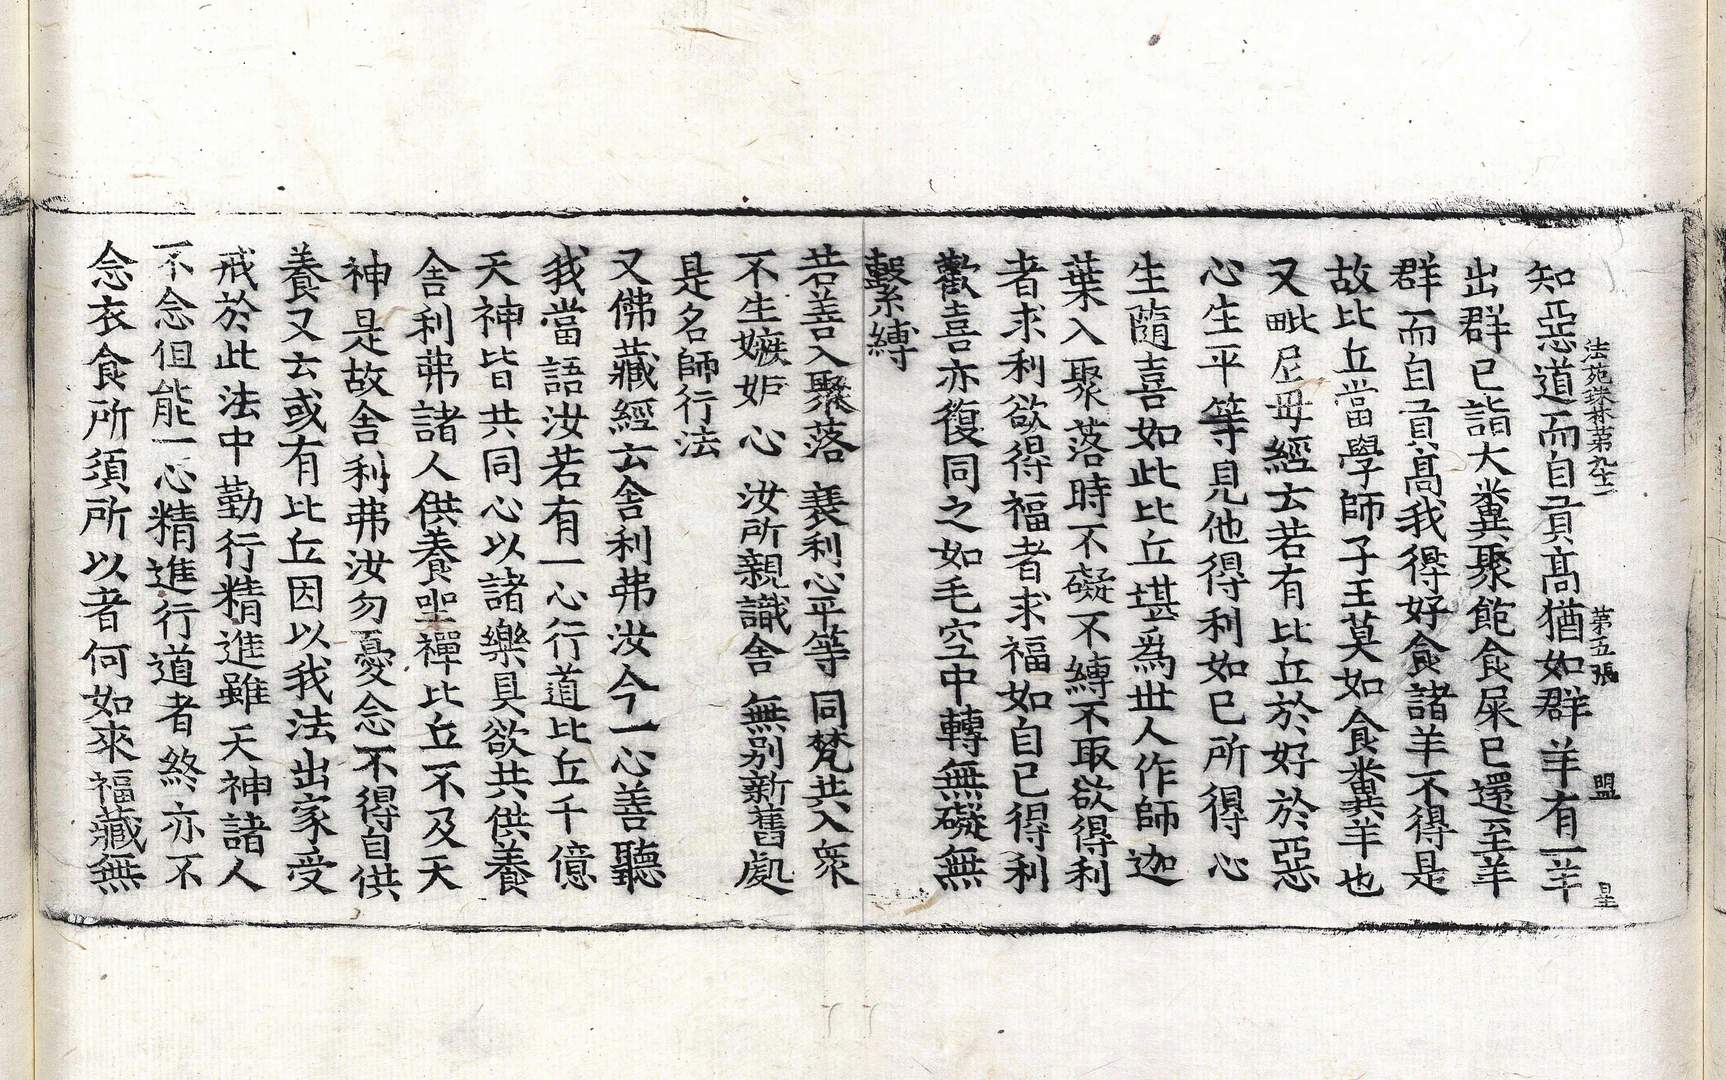 法苑珠林第九十二 第五張 盟
知惡道而自貢高猶如群羊有一羊
出群已詣大糞聚飽食屎已還至羊
群而自貢高我得好食諸羊不得是
故比丘當學師子王莫如食糞羊也
又毗尼母經云若有比丘於好於惡
心生平等見他得利如已所得心
生隨喜如此比丘堪爲世人作師迦
葉入聚落時不礙不縛不取欲得利
者求利欲得福者求福如自已得利
歡喜亦復同之如毛空中轉無礙無
繫縛
若善入聚落 衰利心平等 同梵共入衆
不生嫉妒心 汝所親識舍 無別新舊處
是名師行法
又佛藏經云舍利弗汝今一心善聽
我當語汝若有一心行道比丘千億
天神皆共同心以諸樂具欲共供養
舍利弗諸人供養坐禪比丘不及天
神是故舍利弗汝勿憂念不得自供
養又云或有比丘因以我法出家受
戒於此法中勤行精進雖天神諸人
不念但能一心精進行道者終亦不
念衣食所須所以者何如來福藏無